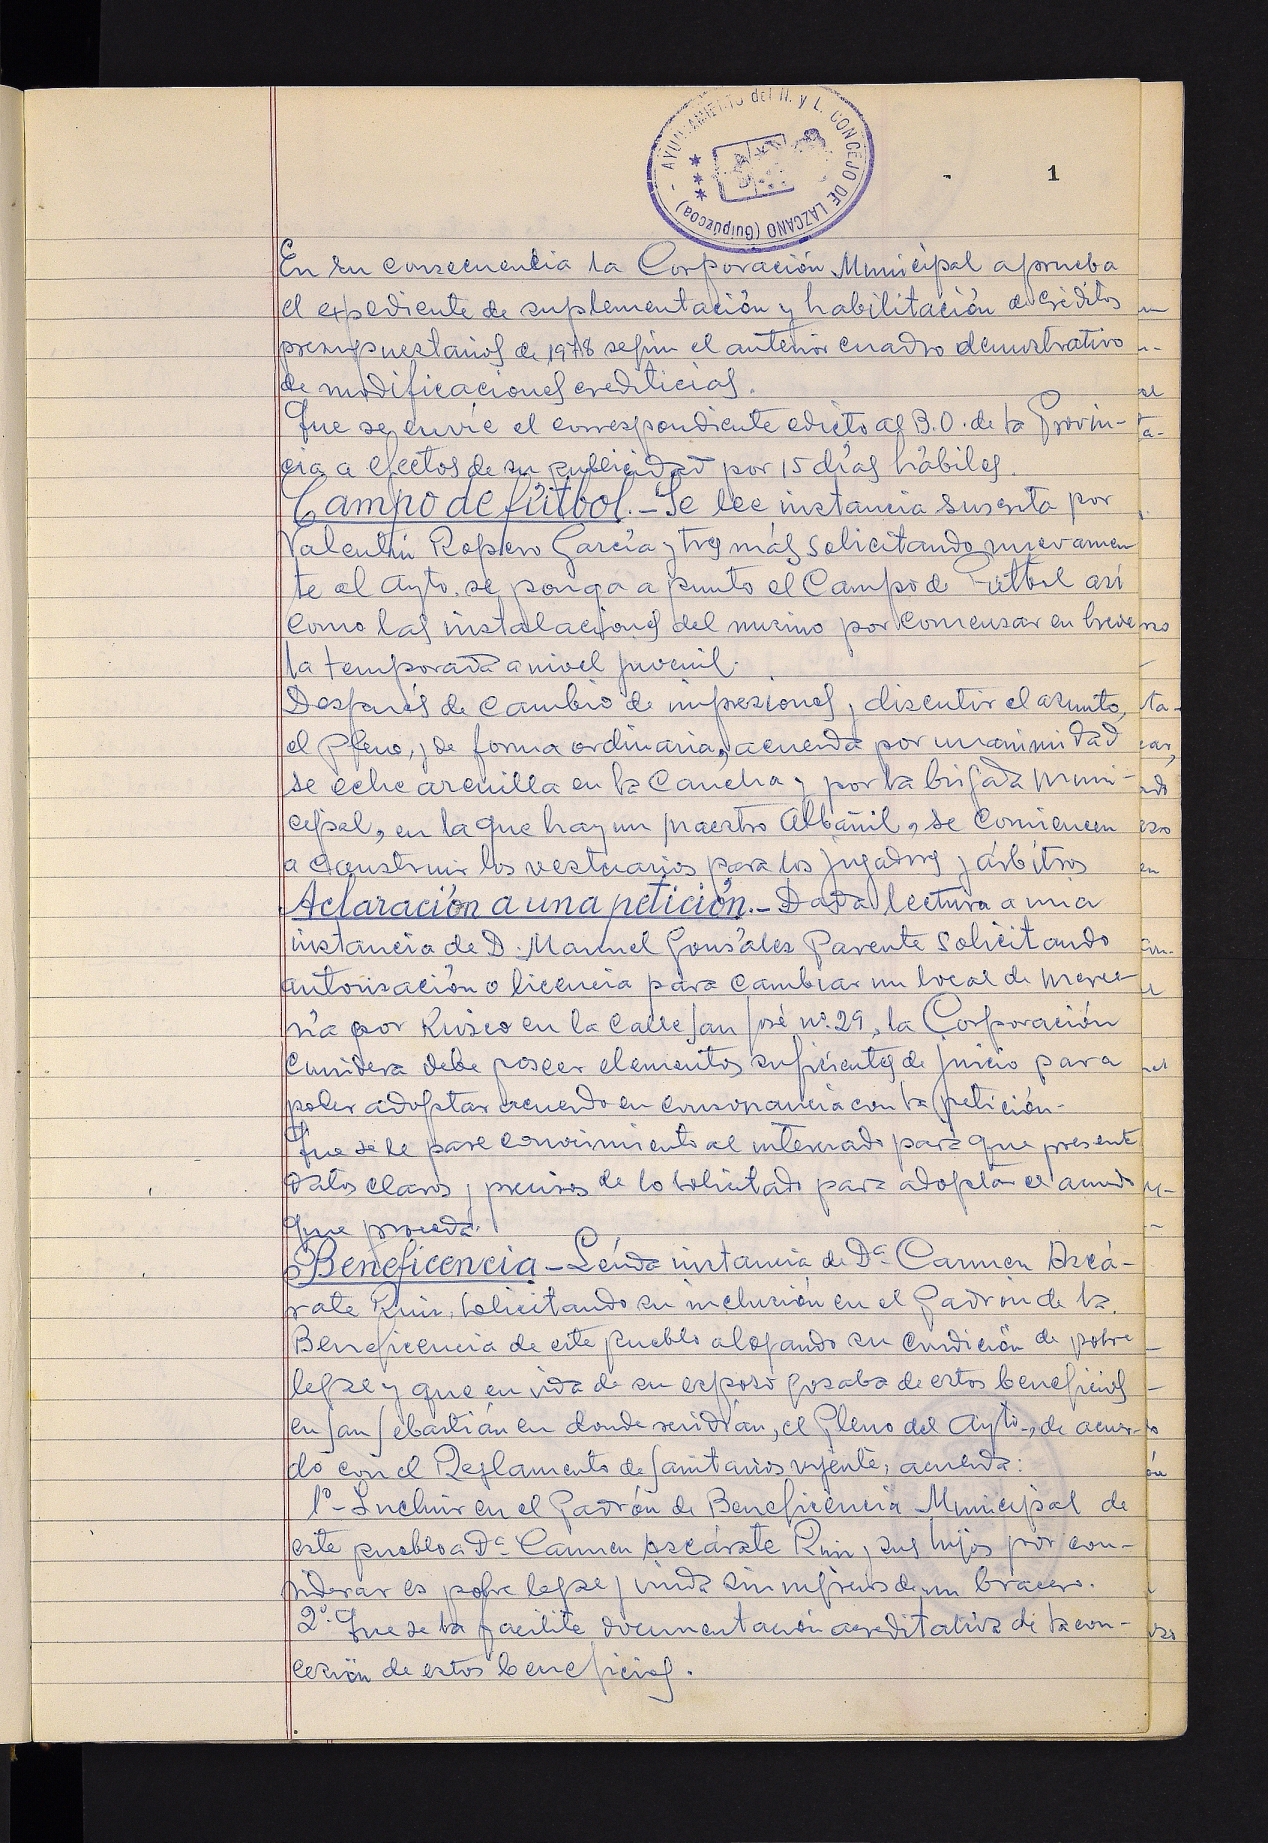 AYUNTAMIENTO del N. y L. CONCEJO DE LAZCANO (Guipúzcoa)
1
En su consecuencia la Corporación Municipal aprueba
el expediente de suplementación y habilitación de créditos
presupuestarios de 1978 según el anterior cuadro demostrativo
de modificaciones crediticias.
Que se envíe el correspondiente edicto al B.O. de la Provin-
cia a efectos de su publicidad por 15 días hábiles.
Campo de fútbol.- Se lee instancia suscrita por
Valentín Ropero García y tres más solicitando nuevamen
te al Ayto. se ponga a punto el Campo de Fútbol así
como las instalaciones del mismo por comenzar en breve
la temporada a nivel juvenil.
Después de cambio de impresiones y discutir el asunto,
el Pleno, y de forma ordinaria, acuerda por unanimidad
se eche arenilla en la Cancha y por la brigada muni-
cipal, en la que hay un maestro Albañil, se comiencen
a construir los vestuarios para los jugadores y árbitros
Aclaración a una petición.- Dada lectura a una
instancia de D. Manuel Gonzáles Parente solicitando
autorización o licencia para cambiar un local de merce-
ría por Kiosco en la Calle San José nº. 29, la Corporación
considera debe poseer elementos suficientes de juicio para
poder adoptar acuerdo en consonancia con la petición.
Que se le pase conocimiento al interesado para que presente
datos claros y precisos de lo solicitado para adoptar el acuerdo
que proceda.
Beneficencia - Leída instancia de Dª Carmen Azcá-
rate Ruiz, solicitando su inclusión en el Padrón de la
Beneficencia de este pueblo alegando su condición de pobre
legal y que en vida de su esposo gozaba de estos beneficios
en San Sebastián en donde residían, el Pleno del Ayto., de acuer-
do con el Reglamento de Sanitarios vigente, acuerda:
1º- Incluir en el Padrón de Beneficencia Municipal de
este pueblo a Dª Carmen Azcárate Ruiz y sus hijos por con-
siderar es pobre legal y viuda sin ingresos de un bracero.
2º. Que se la facilite documentación acreditativa de la con-
cesión de estos beneficios.